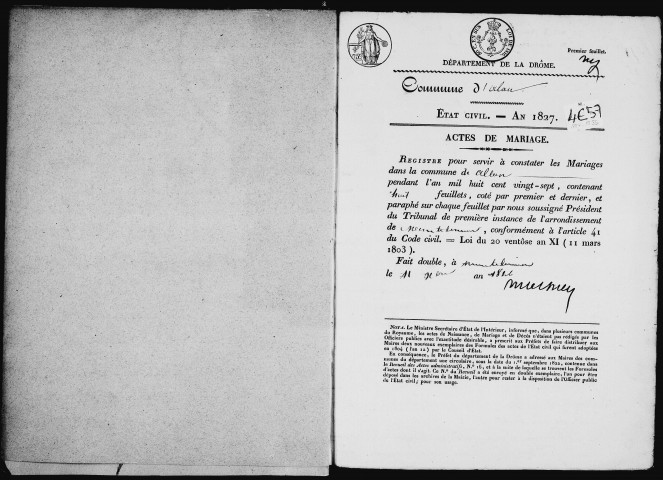 Premier feuillet.
DÉPARTEMENT DE LA DRÔME.
Commune d'allan
ÉTAT CIVIL. — AN 1827.
4E57
ACTES DE MARIAGE.
REGISTRE pour servir à constater les Mariages
dans la commune de allan
pendant l'an mil huit cent vingt-sept, contenant
huit feuillets, coté par premier et dernier, et
paraphé sur chaque feuillet par nous soussigné Président
du Tribunal de première instance de l'arrondissement
de montelimar, conformément à l'article 41
du Code civil. = Loi du 20 ventôse an XI (11 mars
1803).
Fait double, à montelimar
le 11 an 1826
NOTA. Le Ministre Secrétaire d'État de l'Intérieur, informé que, dans plusieurs communes
du Royaume, les actes de Naissance, de Mariage et de Décès n'étaient pas rédigés par les
Officiers publics avec l'exactitude désirable, a prescrit aux Préfets de faire distribuer aux
Maires deux nouveaux exemplaires des Formules des actes de l'état civil qui furent adoptées
en 1804 (l'an 12) par le Conseil d'État.
En conséquence, le Préfet du département de la Drôme a adressé aux Maires des com-
munes du département une circulaire, sous la date du 1.er septembre 1820, contenue dans
le Recueil des Actes administratifs, N.° 16, et à la suite de laquelle se trouvent les Formules
d'actes dont il s'agit. Ce N.° du Recueil a été envoyé en double exemplaire, l'un pour être
déposé dans les archives de la Mairie, l'autre pour rester à la disposition de l'Officier public
de l'État civil, pour son usage.